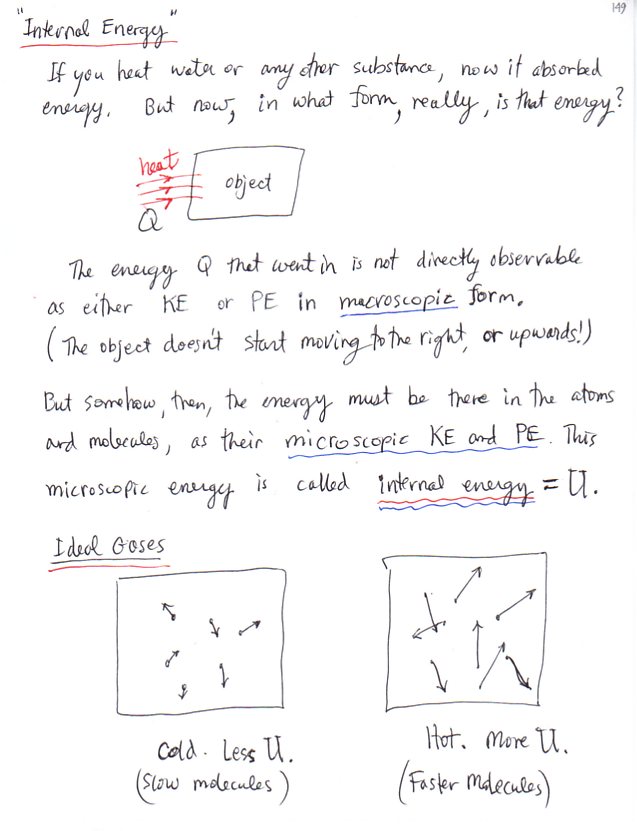 149
"Internal Energy"
If you heat water or any other substance, now it absorbed
energy. But now, in what form, really, is that energy?
heat
object
Q
The energy Q that went in is not directly observable
as either KE or PE in macroscopic form.
(The object doesn't start moving to the right, or upwards!)
But somehow, then, the energy must be there in the atoms
and molecules, as their microscopic KE and PE. This
microscopic energy is called internal energy = U.
Ideal Gases
Cold. Less U.
(Slow molecules)
Hot. More U.
(Faster Molecules)